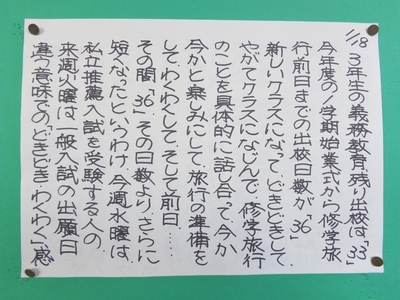 1/18
3年生の義務教育、残り出校は「33」
今年度の1学期始業式から修学旅
行前日までの出校日数が「36」
新しいクラスになって、どきどきして
やがてクラスになじんで、修学旅行
のことを具体的に話し合って、今か
今かと楽しみにして、旅行の準備を
して、わくわくして、そして前日……
その間「36」その日数より、さらに
短くなったというわけ、今週水曜は、
私立推薦入試を受験する人の、
来週火曜は、一般入試の出願日
違う意味での「どきどき、わくわく」感